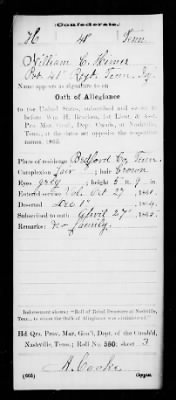 (Confederate.)
H 41 Tenn.
William C. Heimer
Pvt. 41" Regt. Tenn. Inf.
Name appears as signature to an
Oath of Allegiance
to the United States, subscribed and sworn to
before Wm H. Bracken, 1st Lieut. &
Pro Mar Genl, Dep. Cumb, at Nashville,
Tenn., at the dates set opposite the respective
names, 1865.
Place of residence Bedford Co. Tenn.
Complexion fair; hair brown
Eyes grey; height 5 ft. 9 in.
Vol. Oct 27, 1861.
Deserted Dec 1st, 1864.
Subscribed to oath April 27th, 1865.
Remarks: No family.
Indorsement shows: "Roll of Rebel Deserters at Nashville,
Tenn., to whom the Oath of Allegiance was administered."
Hd. Qrs. Prov. Mar. Gen'l, Dept. of the Cumb'd,
Nashville, Tenn.; Roll No. 380; sheet 3
(665)
Copyist.